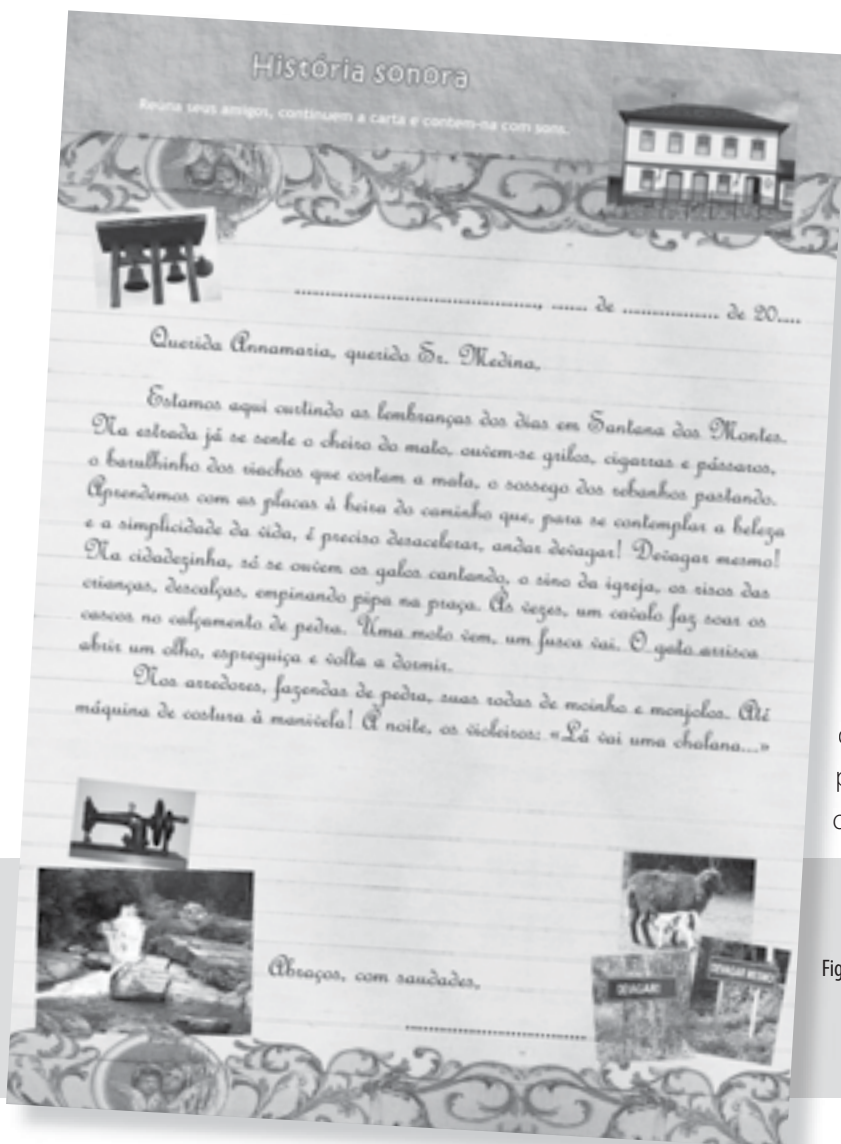 História sonora
Reúna seus amigos, continuem a carta e contem-na com sons.
............................................, ...... de ................. de 20....
Querida Annamaria, querido Sr. Medina,
Estamos aqui curtindo as lembranças dos dias em Santana dos Montes.
Na estrada já se sente o cheiro do mato, ouvem-se grilos, cigarras e pássaros,
o barulhinho dos riachos que cortam a mata, o sossego dos rebanhos pastando.
Aprendemos com as placas à beira do caminho que, para se contemplar a beleza
e a simplicidade da vida, é preciso desacelerar, andar devagar! Devagar mesmo!
Na cidadezinha, só se ouvem os galos cantando, o sino da igreja, os risos das
crianças, descalças, empinando pipa na praça. Às vezes, um cavalo faz soar os
cascos no calçamento de pedra. Uma moto vem, um fusca vai. O gato arrisca
abrir um olho, espreguiça e volta a dormir.
Nos arredores, fazendas de pedra, suas rodas de moinho e monjolos. Até
máquina de costura à manivela! À noite, os violeiros: «Lá vai uma chalana...»
DEVAGAR!
DEVAGAR MESMO!
Abraços, com saudades,
................................
Fig